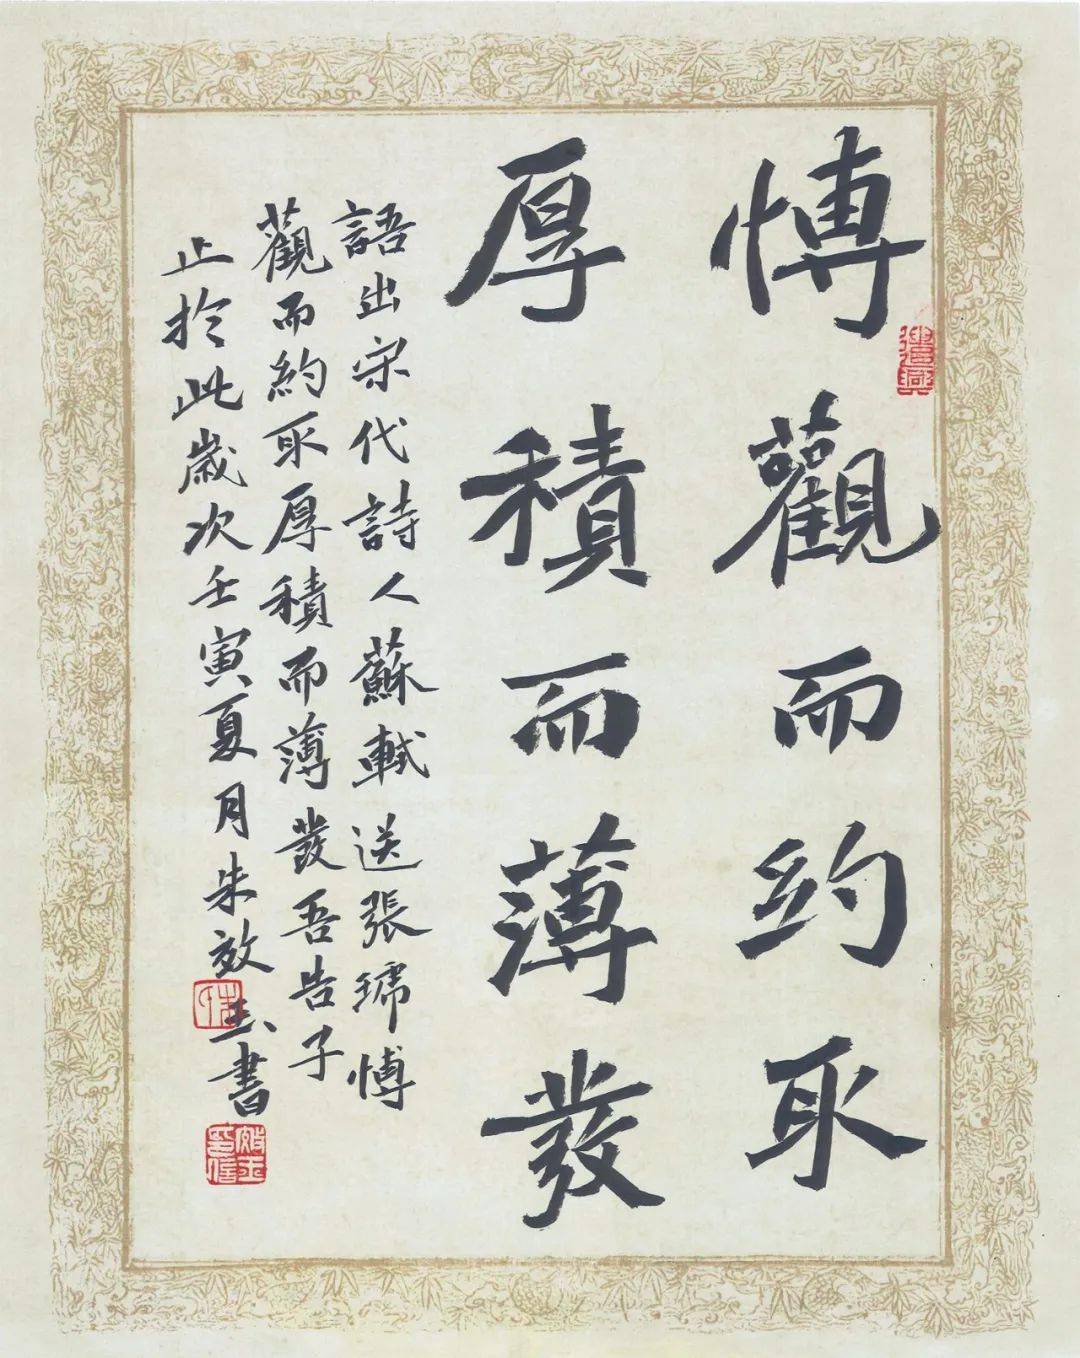 愽觀而約取
厚積而薄發
語出宋代詩人蘇軾送張琥愽
觀而約取厚積而薄發吾告子
止於此歲次壬寅夏月朱效玉書
朱氏
效玉印信